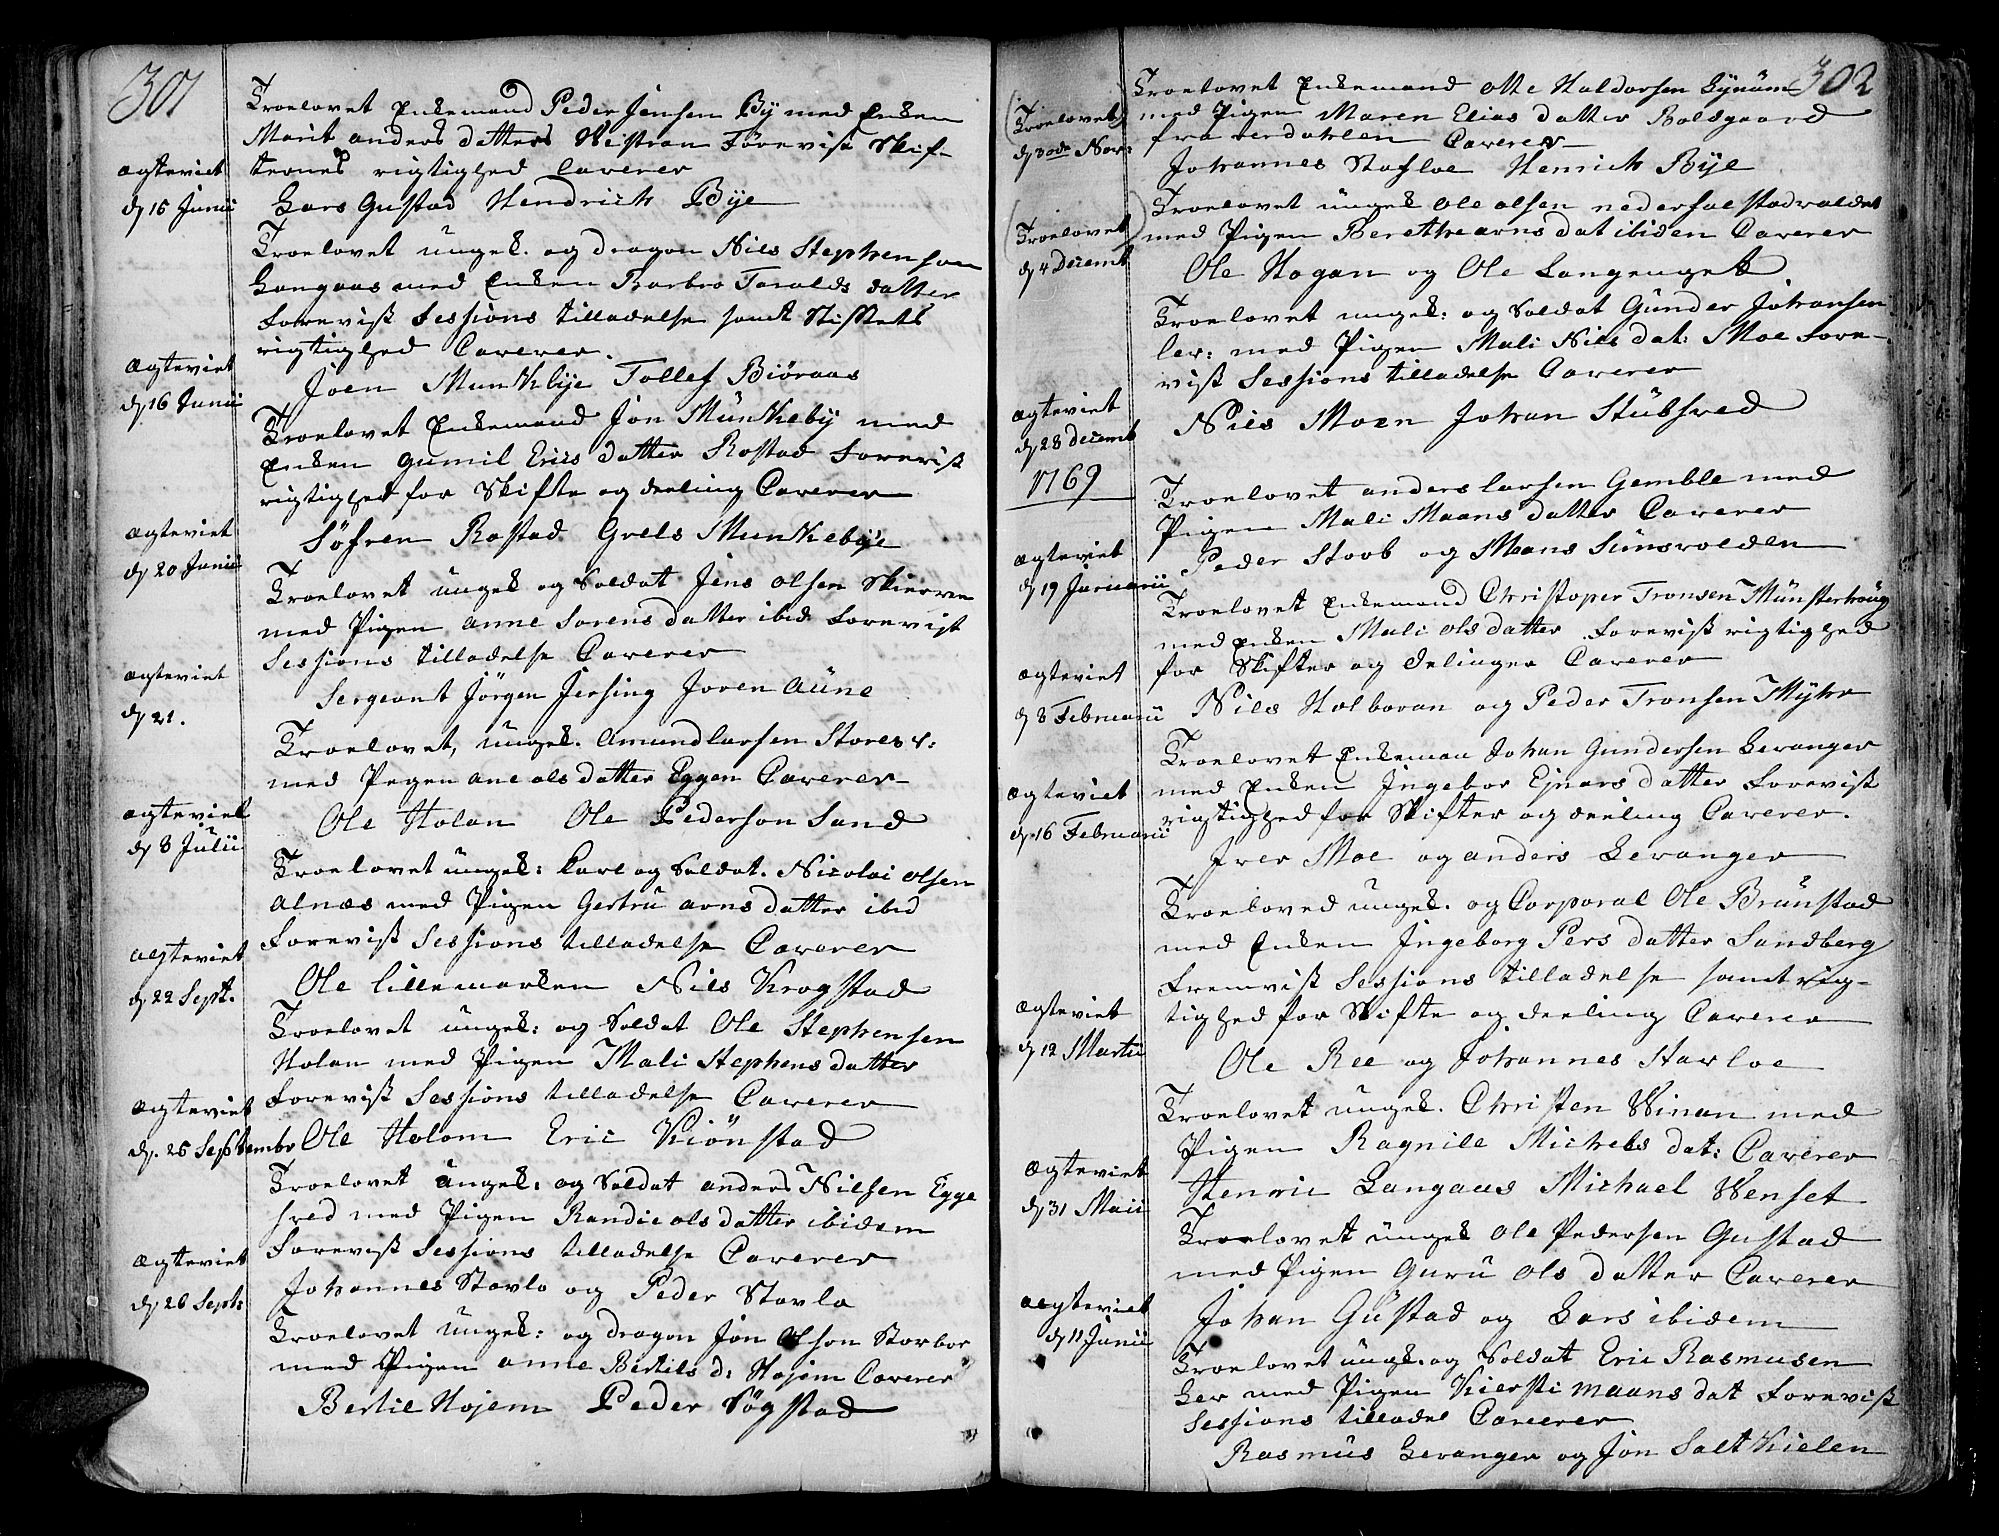 301
Troelovet Enkemand Peder Jensen By med Enken
Marit anders datters Wistran Forevist Skif-
ternes rigtighed Caverer
Ægteviet
d 15 Junii
Lars Gustad Hendrich Bye
Troelovet ungk. og dragon Nils Stephensen
Langaas med Enken Barbro Taralds datter
Forevist Sessions tilladelse samt Skiftets
rigtighed Caverer.
Ægteviet
d 16 Junii
Joen Munkebye Tollef Biöraas
Troelovet Enkemand Jon Munkeby med
Enken gunnil Erics datter Rostad Forevist
rigtighed for Skifte og deeling Caverer
Ægteviet
d 20 Junii
Söfren Rostad Grels Munkebye
Troelovet ungk og Soldat Jens Olsen Skierve
med Pigen anne Sorens datter ibid Forevist
Sessions tilladelse Caverer
Ægteviet
d 21.
Sergeant Jörgen Jersing Joren aune
Troelovet, ungk. Amund larsen Stores v:
med Pegen ane ols datter Eggen Caverer
Ægteviet
d 8 Julii
Ole Holan Ole Pederson Sand
Troelovet ungk: Carl og Soldat. Nicolai olsen
alnæs med Pigen Gertru arns datter ibid
Forevist Sessions tilladelse Caverer
Ægteviet
d 22 Sept.
Ole lillemarken Nils Krogstad
Troelovet ungk: og Soldat Ole Stephensen
Holan med Pigen Mali Stephens datter
Forevist Sessions tilladelse Caverer
Ægteviet
d. 25 Septembr
Ole Holom Eric Kiönstad
Troelovet ungk: og Soldat anders Nilsen Egge
med Pigen Randie ols datter ibidem
Forevist Sessions tilladelse Caverer
Ægteviet
d 26 Sept:
Johannes Stavlo og Peder Stavlo
Troelovet ungk: og dragon Jon Olson Storbor
med Pigen anne Bertils d: Hojem Caverer
Bertil Hojem Peder Sögstad
302
Troelovet Enkemand Otte Haldorsen
med Pigen Maren Elias datter Bolsgaard
fra verdahlen Caverer
Troelovet
d 30de Nov:
Johannes Stafloe Henrich Bye
Troelovet ungk Ole olsen
med Pigen Berethe arns dat ibiden Caverer
Troelovet
d 4 Decemb
Ole Hogan og Ole Langenget
Troelovet ungk: og Soldat Gunder Johansen
ler: med Pigen Mali Nils dat: Moe Fore-
vist Sessions tilladelse Caverer
Ægteviet
d 28 Decemb
Nils Moen Johan Stubsved
1769
Troelovet anders larsen Gemble med
Pigen Mali Maans datter Caverer
Ægteviet
d 19 Januarii
Peder Stoob og Maans Sunsvolden
Troelovet Enkemand Christoper Tronsen Munsterhoug
med Enken Mali ols datter Forevist rigtighed
for Skifter og delinger Caverer
Ægteviet
d 8 Februarii
Nils Holboran og Peder Tronsen Myhr
Troelovet Enkeman Johan Gundersen Levanger
med Enken Ingebor Ejnars datter Forevist
rigtighed for Skifter og deeling Caverer.
Ægteviet
d. 16 Februarii
Iver Moe og anders Levanger
Troeloved ungk. og Corporal Ole Brunstad
med Enken Ingeborg Pers datter Sandberg
Fremvist Sessions tilladelse samt rig-
tighed for Skifte og deeling Caverer
Ægteviet
d 12 Martii
Ole Ree og Johannes Starloe
Troelovet ungk. Christen Winan med
Pigen Ragnile Michels dat: Caverer
Ægteviet
d 31 Maii
Henric Langaas Michael Wenset
Troelovet ungk Ole Pedersen Gustad
med Pigen Guru Ols datter Caverer
Ægteviet
d 11 Junii
Johan Gustad og Lars ibidem
Troelovet ungk. og Soldat Eric Rasmusen
Ler med Pigen Kiersti maans dat Forevist
Sessions tilladel Caverer
Rasmus Levanger og Jon Salt Kielen